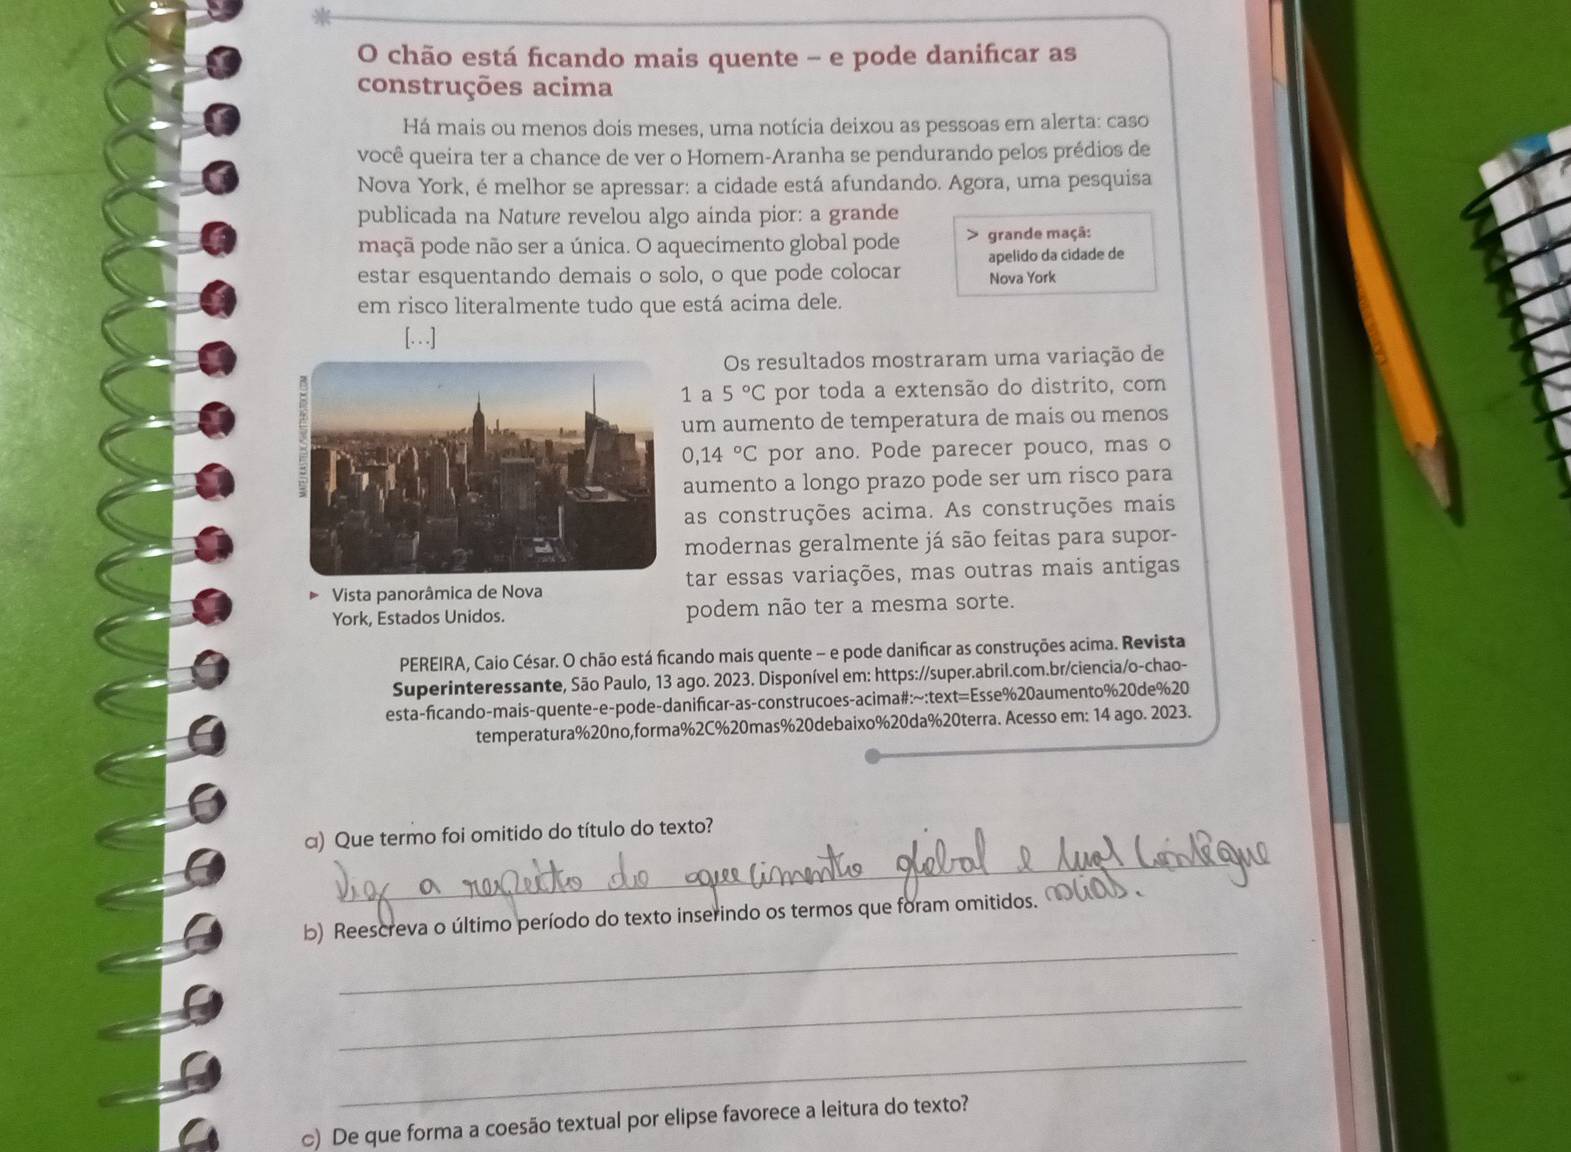 O chão está ficando mais quente – e pode danificar as
construções acima
Há mais ou menos dois meses, uma notícia deixou as pessoas em alerta: caso
você queira ter a chance de ver o Homem-Aranha se pendurando pelos prédios de
Nova York, é melhor se apressar: a cidade está afundando. Agora, uma pesquisa
publicada na Nature revelou algo ainda pior: a grande
maçã pode não ser a única. O aquecimento global pode
estar esquentando demais o solo, o que pode colocar
em risco literalmente tudo que está acima dele.
> grande maçã:
apelido da cidade de
Nova York
[...]
MATEJ KASTELIC/SHUTTERSTOCK.COM
Os resultados mostraram uma variação de
1 a 5 °C por toda a extensão do distrito, com
um aumento de temperatura de mais ou menos
0,14 °C por ano. Pode parecer pouco, mas o
aumento a longo prazo pode ser um risco para
as construções acima. As construções mais
modernas geralmente já são feitas para supor-
tar essas variações, mas outras mais antigas
podem não ter a mesma sorte.
Vista panorâmica de Nova
York, Estados Unidos.
PEREIRA, Caio César. O chão está ficando mais quente – e pode danificar as construções acima. Revista
Superinteressante, São Paulo, 13 ago. 2023. Disponível em: https://super.abril.com.br/ciencia/o-chao-
esta-ficando-mais-quente-e-pode-danificar-as-construcoes-acima#:~:text=Esse%20aumento%20de%20
temperatura%20no,forma%2C%20mas%20debaixo%20da%20terra. Acesso em: 14 ago. 2023.
a) Que termo foi omitido do título do texto?
a respeito do aquecimento global e
b) Reescreva o último período do texto inserindo os termos que foram omitidos.
c) De que forma a coesão textual por elipse favorece a leitura do texto?